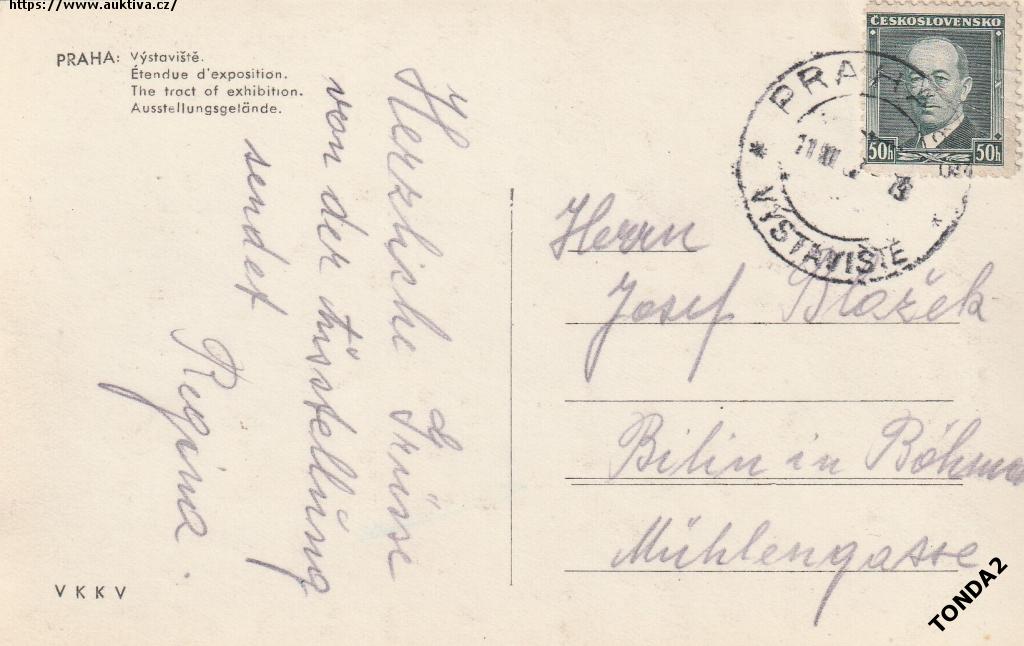 https://www.auktiva.cz/
PRAHA: Výstaviště.
Étendue d'exposition.
The tract of exhibition.
Ausstellungsgelände.
ČESKOSLOVENSKO
50h 50h
PRAHA
VÝSTAVIŠTĚ
Herzliche Grüsse
von der Ausstellung
sendet
Regina.
Herrn
Josef Blažek
Bilin in Böhmen
Mühlengasse
VKKV
TONDA2